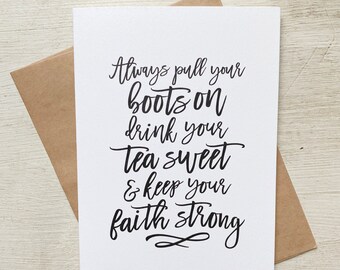 Always pull your
boots on
drink your
tea sweet
& keep your
faith strong